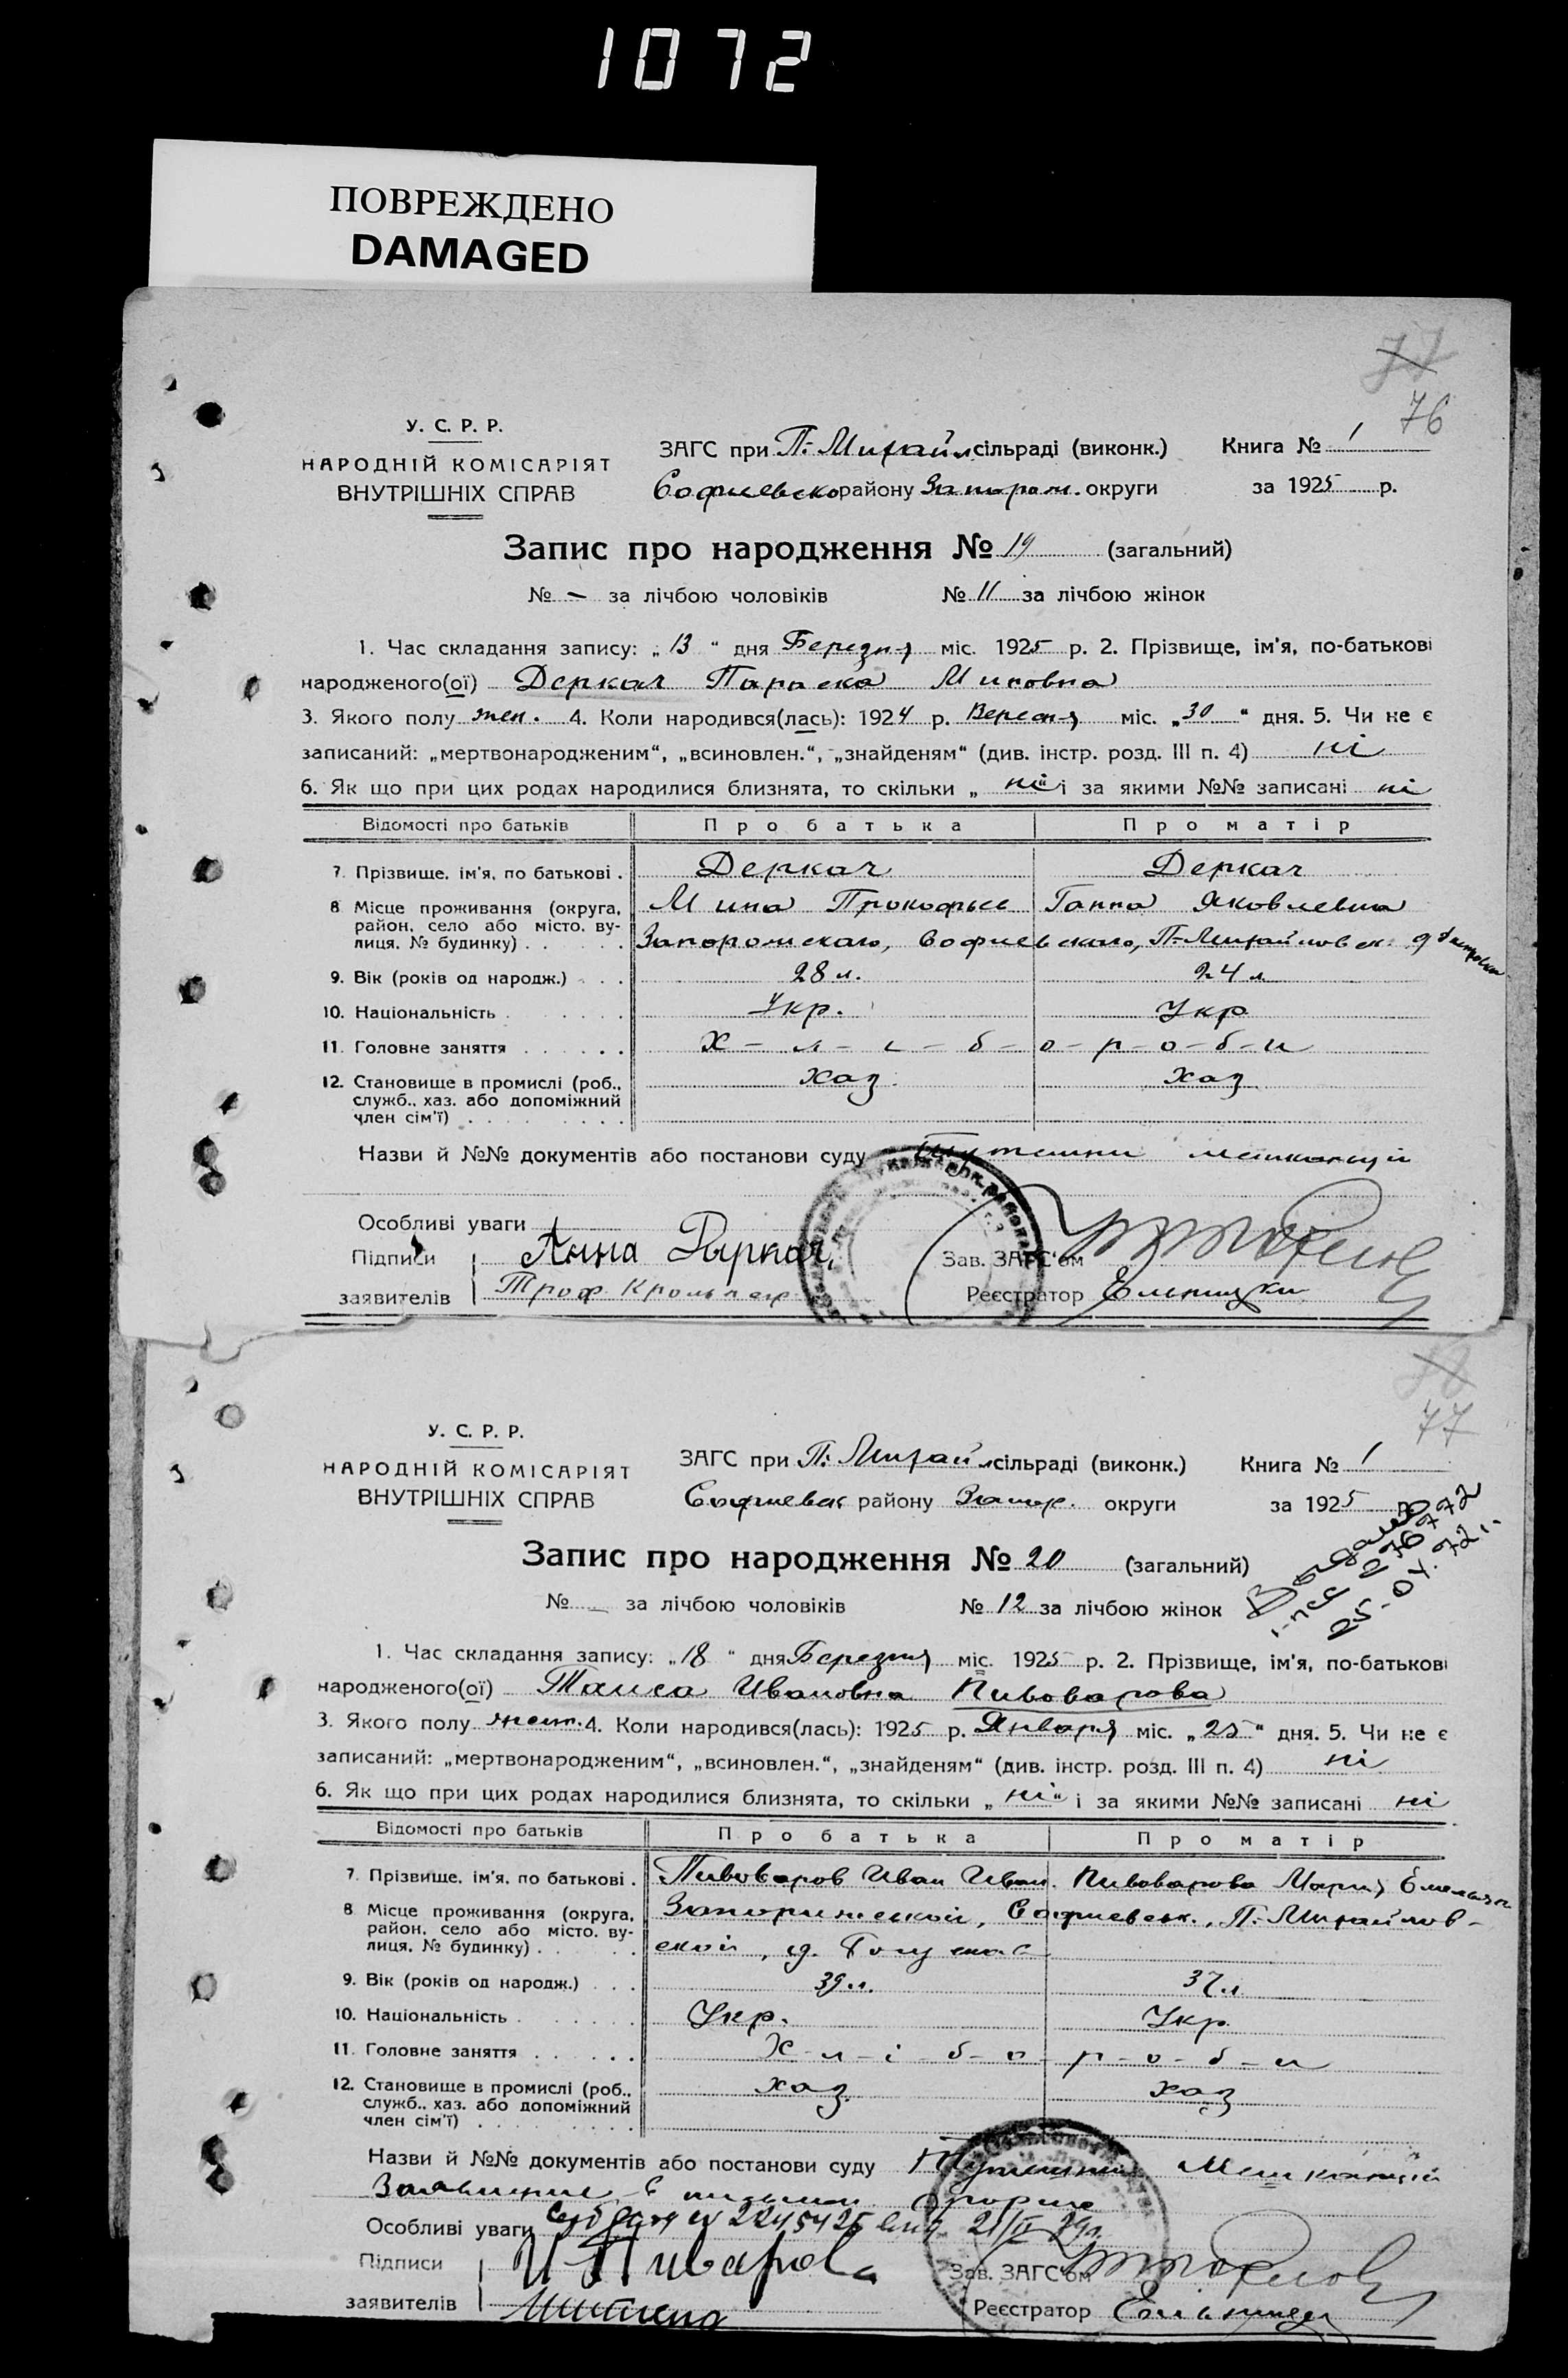 1072
ПОВРЕЖДЕНО
DAMAGED
77
76
У. С. Р. Р.
НАРОДНІЙ КОМІСАРІЯТ
ВНУТРІШНІХ СПРАВ
ЗАГС при П.-Михайл сільраді (виконк.) Книга № 1
Софиевско району Запорож. округи за 1925 р.
Запис про народження № 19 (загальний)
№ – за лічбою чоловіків № 11 за лічбою жінок
1. Час складання запису: „13“ дня Березня міс. 1925 р. 2. Прізвище, ім'я, по-батькові
народженого(ої) Деркач Параска Миновна
3. Якого полу жен. 4. Коли народився(лась): 1924 р. Вересня міс. „30“ дня. 5. Чи не є
записаний: „мертвонародженим“, „всиновлен.“, „знайденям“ (див. інстр. розд. III п. 4) ні
6. Як що при цих родах народилися близнята, то скільки „ні“ і за якими №№ записані ні
Відомості про батьків Про батька Про матір
7. Прізвище, ім'я, по батькові . Деркач Деркач
8 Місце проживання (округа, район, село або місто, вулиця, № будинку) . . . Мина Прокофьев Ганна Яковлевна
Запорожскаго, Софиевскаго, П.-Михайловск.
9. Вік (років од народж.) . . . 28 л. 24 л
10. Національність . . . Укр. Укр
11. Головне заняття . . . Х – л – і – б – о – р – о – б – и
12. Становище в промислі (роб., служб., хаз. або допоміжний член сім'ї) . . . хаз. хаз
Назви й №№ документів або постанови суду Тутешни мешканци
Особливі уваги
Підписи Анна Зав. ЗАГС'ом
заявителів Троф Реєстратор
78
77
У. С. Р. Р.
НАРОДНІЙ КОМІСАРІЯТ
ВНУТРІШНІХ СПРАВ
ЗАГС при П.-Михайл сільраді (виконк.) Книга № 1
Софиевск району Запор. округи за 1925 р.
Запис про народження № 20 (загальний)
№ – за лічбою чоловіків № 12 за лічбою жінок
1. Час складання запису: „18“ дня Березня міс. 1925 р. 2. Прізвище, ім'я, по-батькові
народженого(ої) Таиса Ивановна Пивоварова
3. Якого полу жен. 4. Коли народився(лась): 1925 р. Января міс. „25“ дня. 5. Чи не є
записаний: „мертвонародженим“, „всиновлен.“, „знайденям“ (див. інстр. розд. III п. 4) ні
6. Як що при цих родах народилися близнята, то скільки „ні“ і за якими №№ записані ні
Відомості про батьків Про батька Про матір
7. Прізвище, ім'я, по батькові . Пивоваров Иван Иван. Пивоварова Мария
8 Місце проживання (округа, район, село або місто, вулиця, № будинку) . . . Запорижской, Софиевск., П.-Михайлов-
ской
9. Вік (років од народж.) . . . 39 л. 37 л
10. Національність . . . Укр. Укр.
11. Головне заняття . . . Х – л – і – б – о – р – о – б – и
12. Становище в промислі (роб., служб., хаз. або допоміжний член сім'ї) . . . хаз. хаз
Назви й №№ документів або постанови суду
Особливі уваги
Підписи Зав. ЗАГС'ом
заявителів Реєстратор